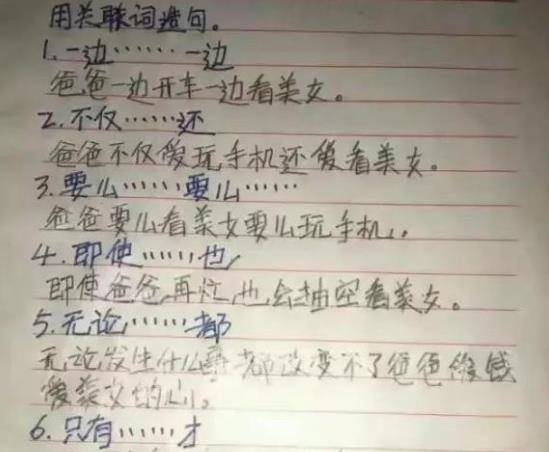 用关联词造句。
1.一边……一边
爸爸一边开车一边看美女。
2.不仅……还
爸爸不仅爱玩手机还爱看美女。
3.要么……要么……
爸爸要么看美女要么玩手机。
4.即使……也
即使爸爸再忙,也会抽空看美女。
5.无论……都
无论发生什么事都改变不了爸爸爱钱
爱美女的心。
6.只有……才